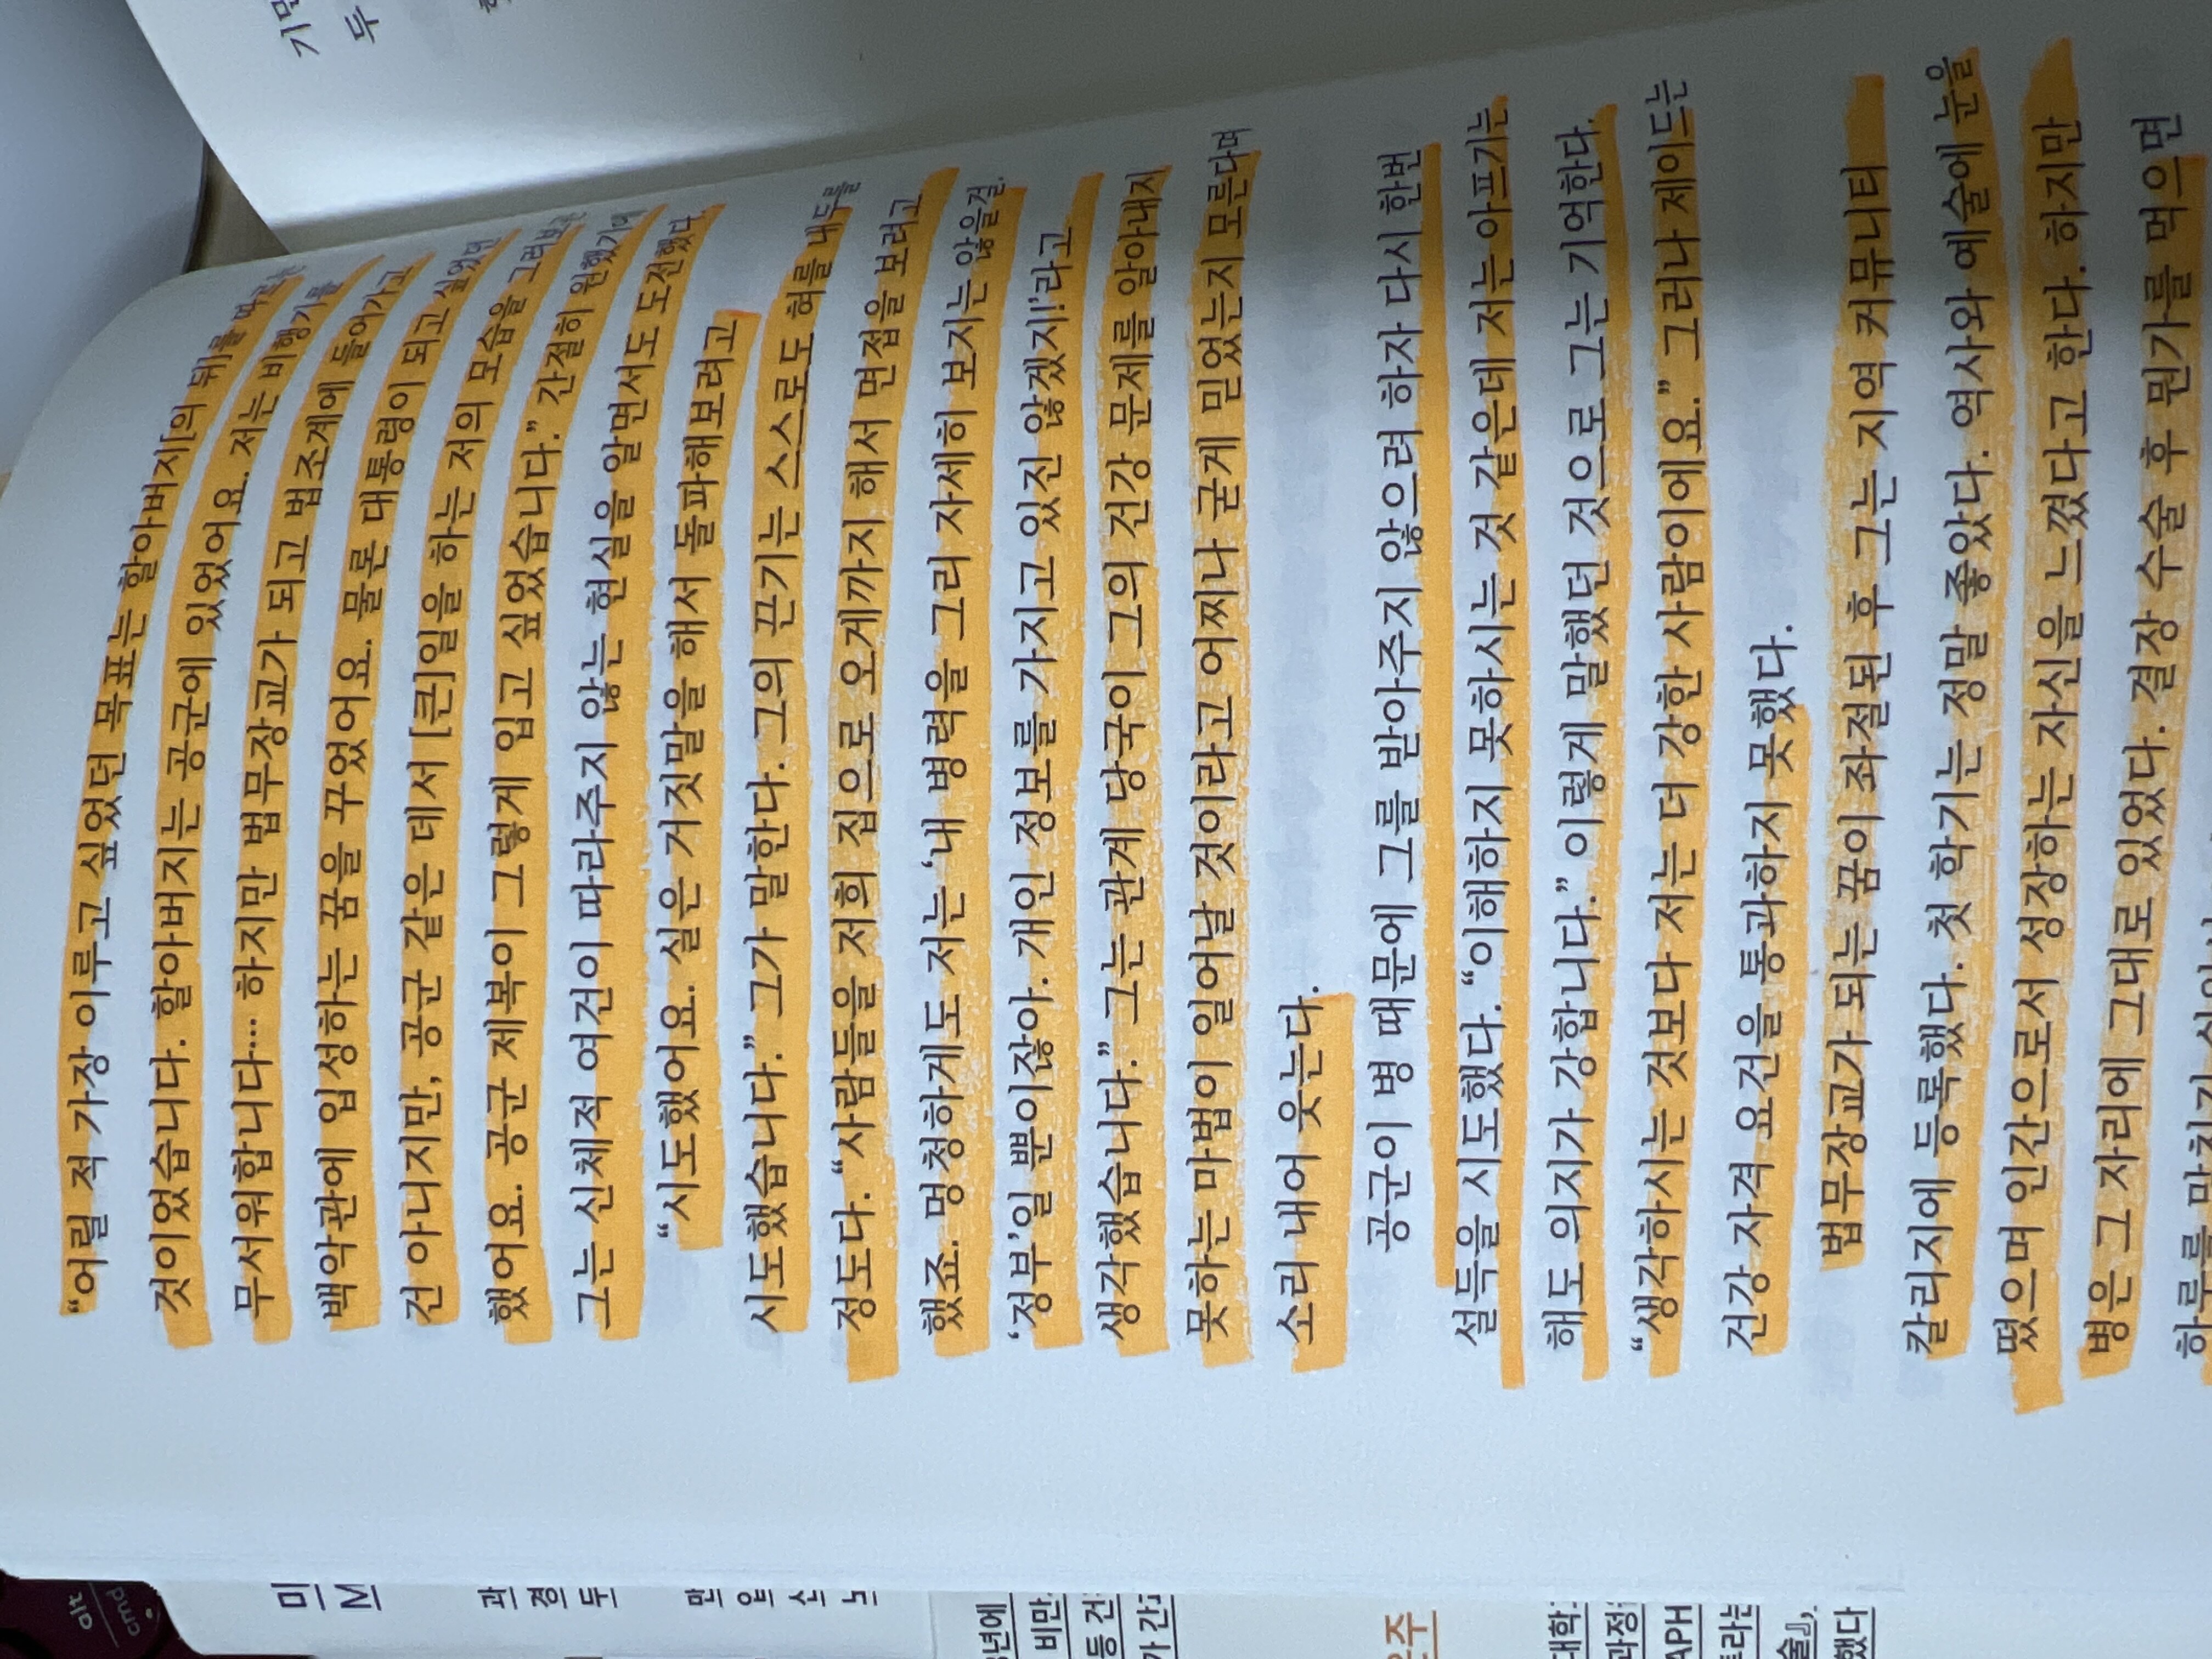 “어릴 적 가장 이루고 싶었던 목표는 할아버지[의 뒤]를 따르는
것이었습니다. 할아버지는 공군에 있었어요. 저는 비행기를
무서워합니다…… 하지만 법무장교가 되고 법조계에 들어가고
백악관에 입성하는 꿈을 꾸었어요. 물론 대통령이 되고 싶었던
건 아니지만, 공군 같은 데서 [큰]일을 하는 저의 모습을 그려보곤
했어요. 공군 제복이 그렇게 입고 싶었습니다.” 간절히 원했기에
그는 신체적 여건이 따라주지 않는 현실을 알면서도 도전했다.
“시도했어요. 실은 거짓말을 해서 돌파해보려고
시도했습니다.” 그가 말한다. 그의 끈기는 스스로도 혀를 내두를
정도다. “사람들을 저희 집으로 오게까지 해서 면접을 보려고
했죠. 멍청하게도 저는 ‘내 병력을 그리 자세히 보지는 않을걸.
‘정부’일 뿐이잖아. 개인 정보를 가지고 있진 않겠지!’라고
생각했습니다.” 그는 관계 당국이 그의 건강 문제를 알아내지
못하는 마법이 일어날 것이라고 어찌나 굳게 믿었는지 모른다며
소리 내어 웃는다.
공군이 병 때문에 그를 받아주지 않으려 하자 다시 한번
설득을 시도했다. “이해하지 못하시는 것 같은데 저는 아프기는
해도 의지가 강합니다.” 이렇게 말했던 것으로 그는 기억한다.
“생각하시는 것보다 저는 더 강한 사람이에요.” 그러나 제이드는
건강 자격 요건을 통과하지 못했다.
법무장교가 되는 꿈이 좌절된 후 그는 지역 커뮤니티
칼리지에 등록했다. 첫 학기는 정말 좋았다. 역사와 예술에 눈을
떴으며 인간으로서 성장하는 자신을 느꼈다고 한다. 하지만
병은 그 자리에 그대로 있었다. 결장 수술 후 뭔가를 먹으면
하루를 망치기
기면
두
alt
cmd
미
M
과
경
두
민
비만
등 건
가 간
년에
대학
과정
APH
트라는
술』,
했다